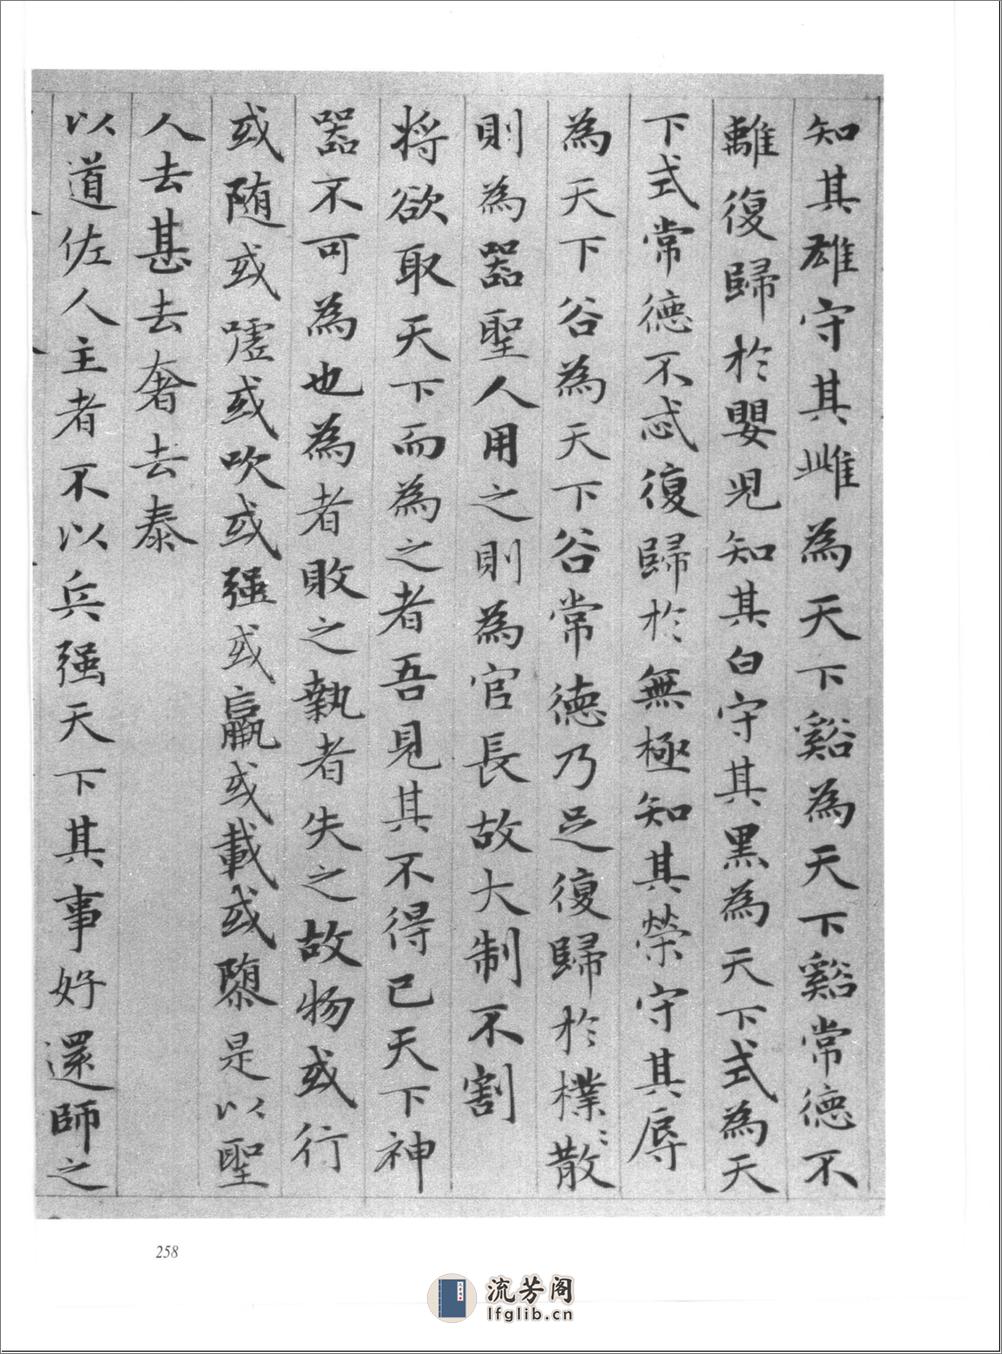 知其雄守其雌為天下谿為天下谿常德不
離復歸於嬰兒知其白守其黑為天下式為天
下式常德不忒復歸於無極知其榮守其辱
為天下谷為天下谷常德乃足復歸於樸〻散
則為器聖人用之則為官長故大制不割
將欲取天下而為之者吾見其不得已天下神
器不可為也為者敗之執者失之故物或行
或随或嘘或吹或强或羸或載或隳是以聖
人去甚去奢去泰
以道佐人主者不以兵强天下其事好還師之
258
流芳阁
lfglib.cn